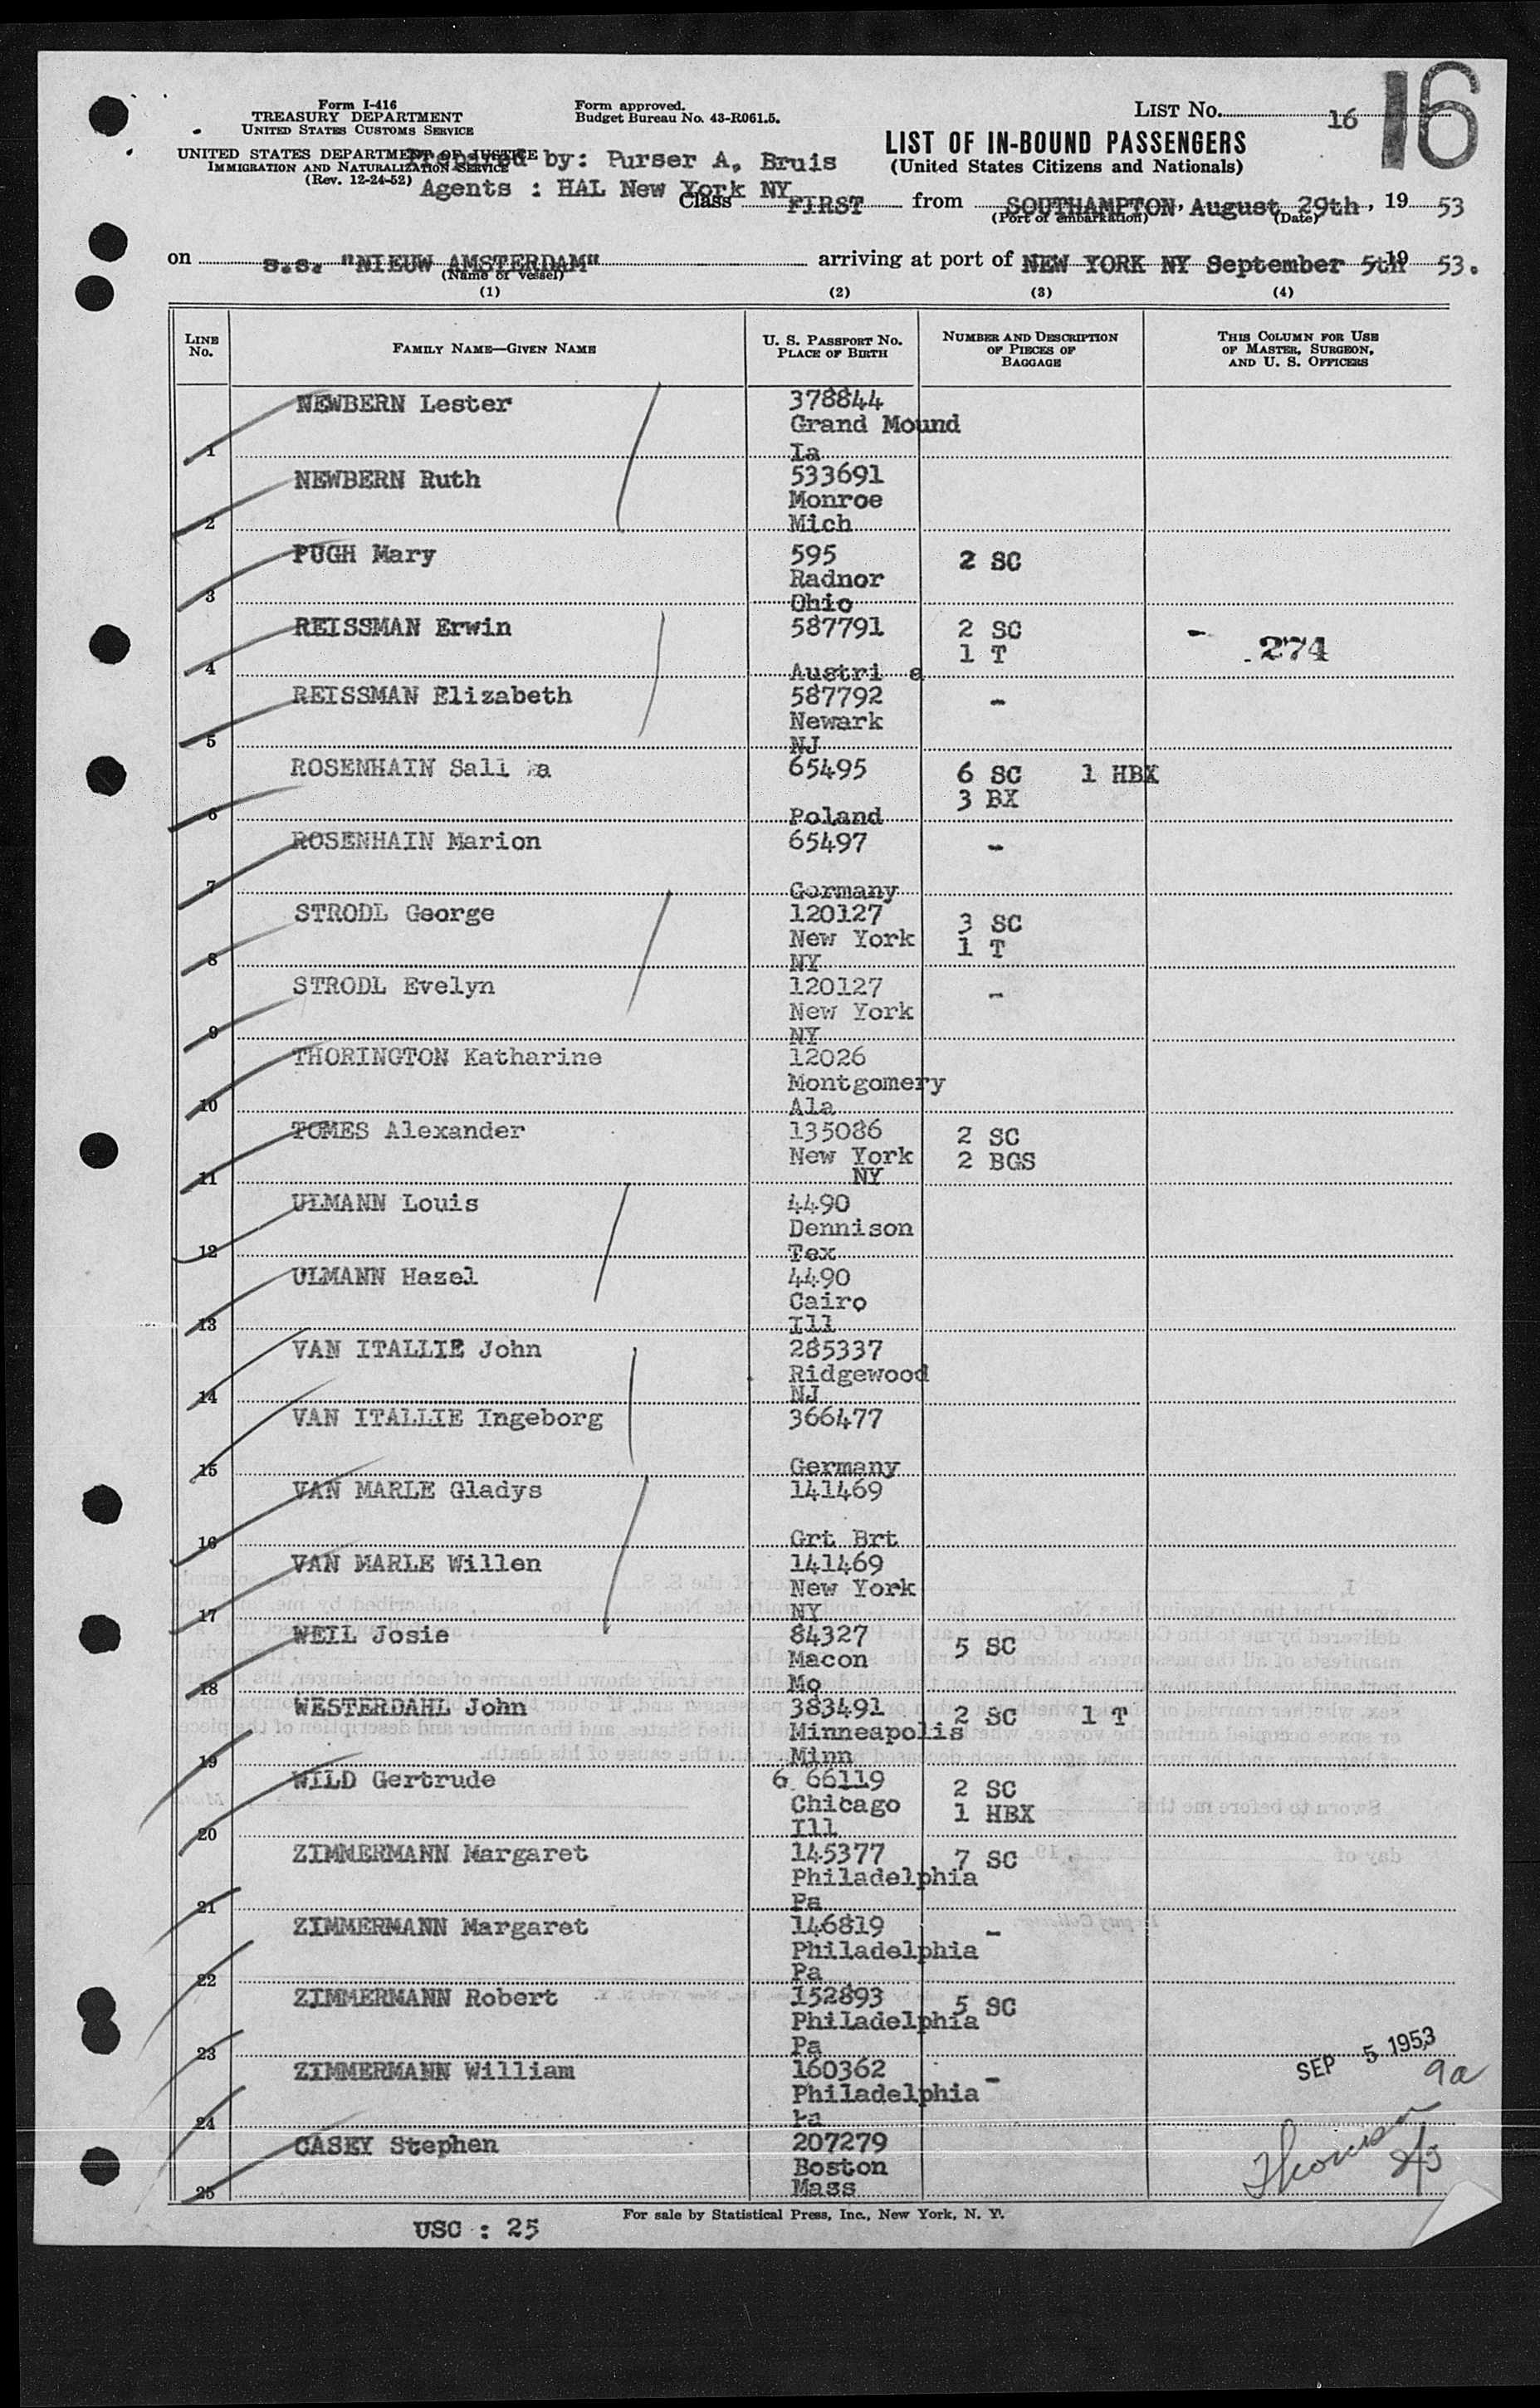 Form I-416
TREASURY DEPARTMENT
UNITED STATES CUSTOMS SERVICE
UNITED STATES DEPARTMENT OF JUSTICE
IMMIGRATION AND NATURALIZATION SERVICE
(Rev. 12-24-52)
Form approved.
Budget Bureau No. 43-R061.5.
LIST No. 16
16
LIST OF IN-BOUND PASSENGERS
(United States Citizens and Nationals)
Prepared by: Purser A. Bruis
Agents : HAL New York NY
Class FIRST from SOUTHAMPTON, August 29th, 19 53
(Port of embarkation) (Date)
on s.s. "NIEUW AMSTERDAM" arriving at port of NEW YORK NY September 5th 19 53.
(Name of vessel)
(1) (2) (3) (4)
LINE No. FAMILY NAME—GIVEN NAME U. S. PASSPORT No. PLACE OF BIRTH NUMBER AND DESCRIPTION OF PIECES OF BAGGAGE THIS COLUMN FOR USE OF MASTER, SURGEON, AND U. S. OFFICERS
NEWBERN Lester 378844
Grand Mound
1 Ia
NEWBERN Ruth 533691
Monroe
2 Mich
PUGH Mary 595 2 SC
Radnor
3 Ohio
REISSMAN Erwin 587791 2 SC -
1 T 274
4 Austri a
REISSMAN Elizabeth 587792 -
Newark
5 NJ
ROSENHAIN Sali a 65495 6 SC 1 HBX
3 BX
6 Poland
ROSENHAIN Marion 65497 -
7 Germany
STRODL George 120127 3 SC
New York 1 T
8 NY
STRODL Evelyn 120127 -
New York
9 NY
THORINGTON Katharine 12026
Montgomery
10 Ala
TOMES Alexander 135086 2 SC
New York 2 BGS
11 NY
ULMANN Louis 4490
Dennison
12 Tex
ULMANN Hazel 4490
Cairo
13 Ill
VAN ITALLIE John 285337
Ridgewood
14 NJ
VAN ITALLIE Ingeborg 366477
15 Germany
VAN MARLE Gladys 141469
16 Grt Brt
VAN MARLE Willen 141469
New York
17 NY
WEIL Josie 84327 5 SC
Macon
18 Mo
WESTERDAHL John 383491 2 SC 1 T
Minneapolis
19 Minn
WILD Gertrude 6 66119 2 SC
Chicago 1 HBX
20 Ill
ZIMMERMANN Margaret 145377 7 SC
Philadelphia
21 Pa
ZIMMERMANN Margaret 146819 -
Philadelphia
22 Pa
ZIMMERMANN Robert 152893 5 SC
Philadelphia
23 Pa
ZIMMERMANN William 160362 -
Philadelphia
24 Pa
SEP 5 1953
9a
CASEY Stephen 207279
Boston
25 Mass
For sale by Statistical Press, Inc., New York, N. Y.
USC : 25